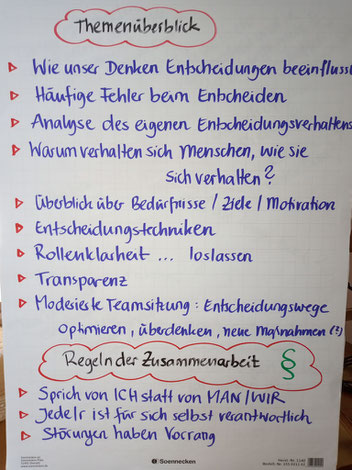 Themenüberblick
Wie unser Denken Entscheidungen beeinflusst
Häufige Fehler beim Entscheiden
Analyse des eigenen Entscheidungsverhaltens
Warum verhalten sich Menschen, wie sie
sich verhalten?
Überblick über Bedürfnisse / Ziele / Motivation
Entscheidungstechniken
Rollenklarheit ... loslassen
Transparenz
Modesieste Teamsitzung: Entscheidungswege
optimieren, überdenken, neue Maßnahmen (?)
Regeln der Zusammenarbeit §
Sprich von ICH statt von MAN/WIR
Jede/r ist für sich selbst verantwortlich
Störungen haben Vorrang
Soennecken